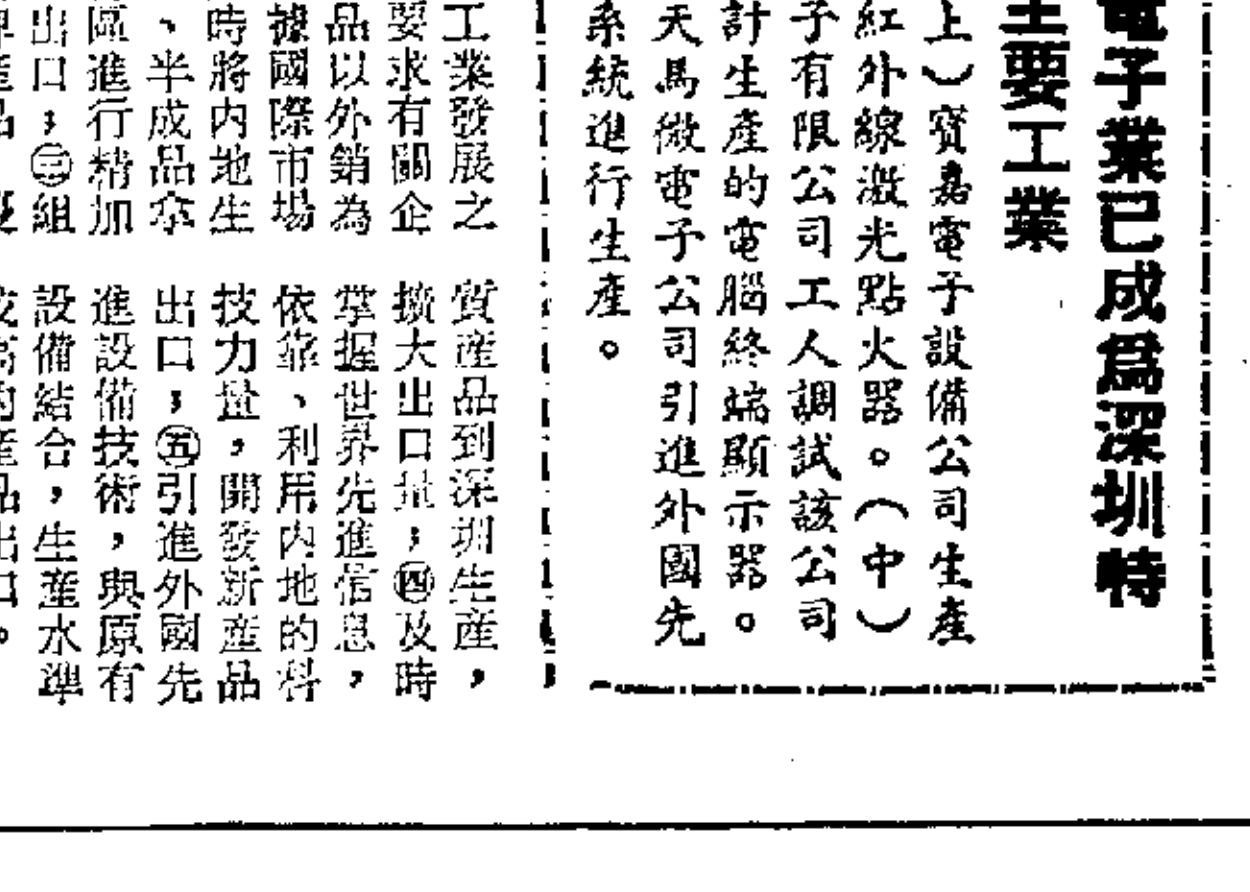 電子業已成爲深圳特
主要工業
上）寶嘉電子設備公司生產
紅外線激光點火器。（中）
子有限公司工人調試該公司
計生產的電腦終端顯示器。
天馬微電子公司引進外國先
系統進行生產。
工業發展之
要求有關企
品以外銷為
據國際市場
時將内地生
、半成品拿
區進行精加
出口；㊂組
產品
質產品到深圳生產，
擴大出口量；㊃及時
掌握世界先進信息，
依靠、利用内地的科
技力量，開發新產品
出口；㊄引進外國先
進設備技術，與原有
設備結合，生產水準
較高的產品出口。